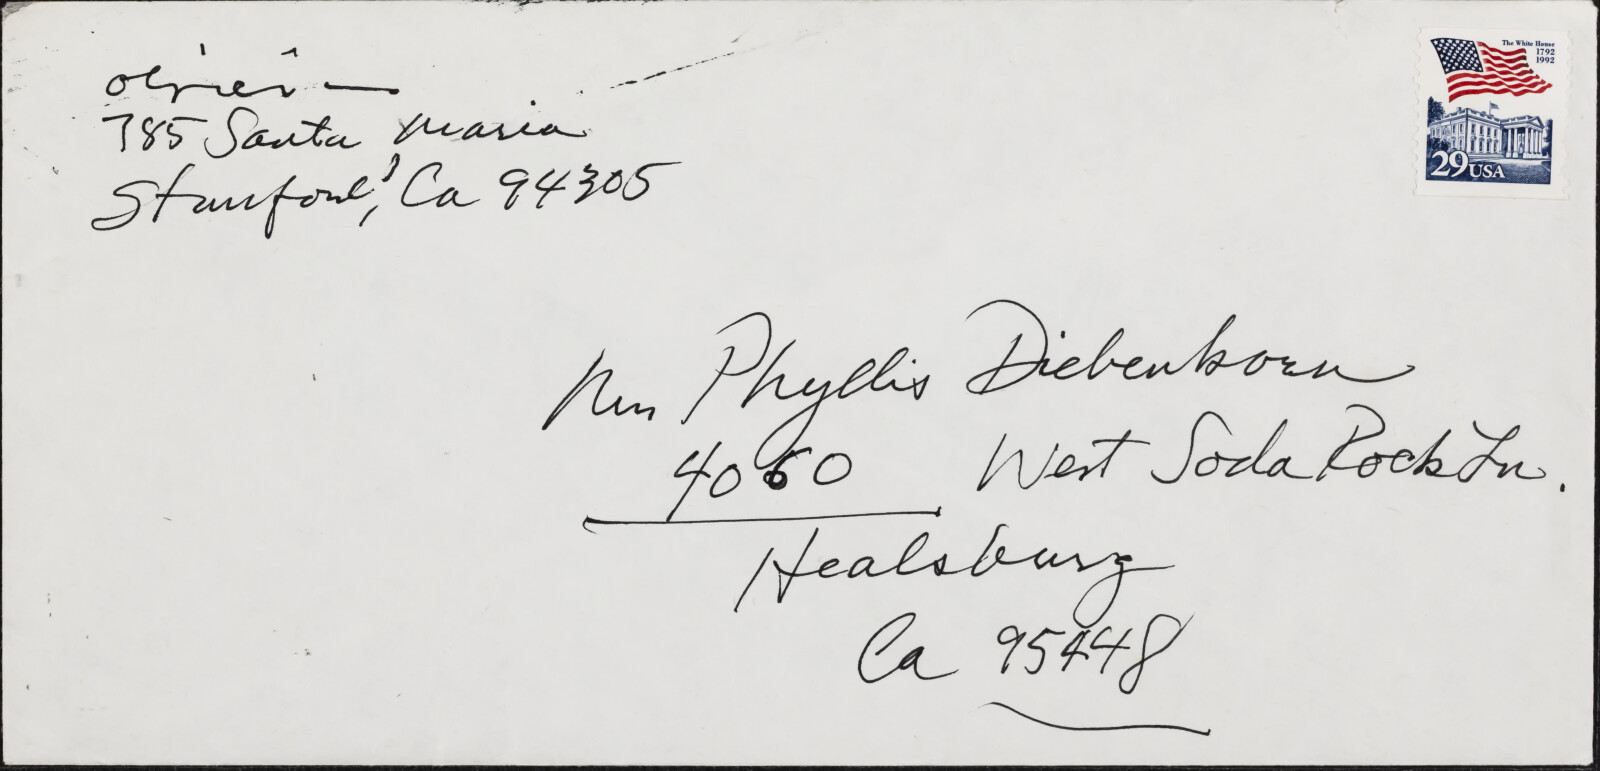 Oliveira
785 Santa Maria
Stanford, Ca 94305
The White House
1792
1992
29 USA
Mrs Phyllis Diebenkorn
4060 West Soda Rock Ln.
Healsburg
Ca 95448